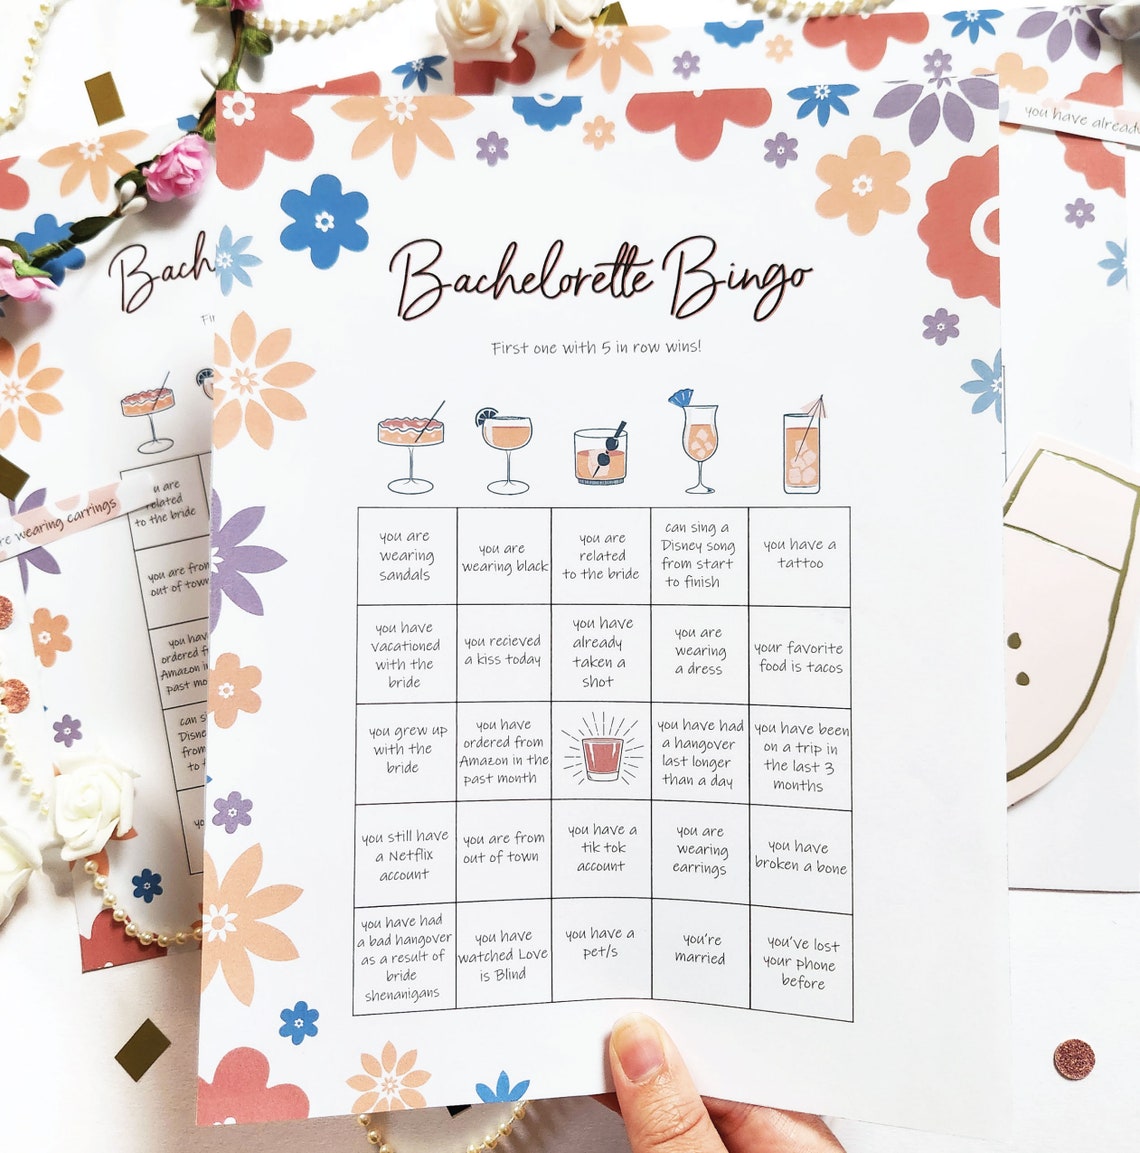 you have already
Bach
Bachelorette Bingo
First one with 5 in row wins!
wearing earrings
you are
wearing
sandals
you are
wearing black
you are
related
to the bride
can sing a
Disney song
from start
to finish
you have a
tattoo
you have
vacationed
with the
bride
you recieved
a kiss today
you have
already
taken a
shot
you are
wearing
a dress
your favorite
food is tacos
you grew up
with the
bride
you have
ordered from
Amazon in the
past month
you have had
a hangover
last longer
than a day
you have been
on a trip in
the last 3
months
you still have
a Netflix
account
you are from
out of town
you have a
tik tok
account
you are
wearing
earrings
you have
broken a bone
you have had
a bad hangover
as a result of
bride
shenanigans
you have
watched Love
is Blind
you have a
pet/s
you're
married
you've lost
your phone
before
you are
related
to the bride
you are from
out of town
you have
ordered
Amazon
past
can
Disney
from
to